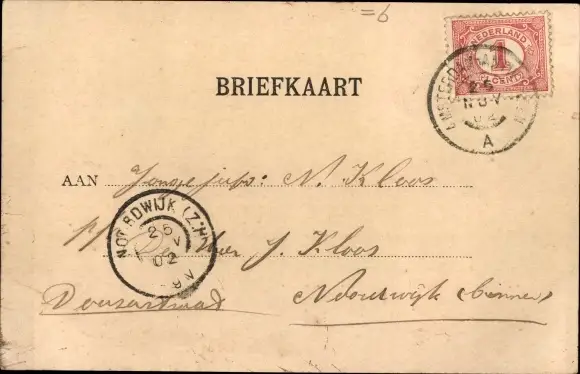 =6
NEDERLAND
1
CENT
AMSTERDAM
25
NOV
02
A
BRIEFKAART
AAN Jongejufr: N. Kloos
NOORDWIJK (Z:H)
25
NOV
02
9V
p/ De Heer J. Kloos
Noordwijk (binnen)